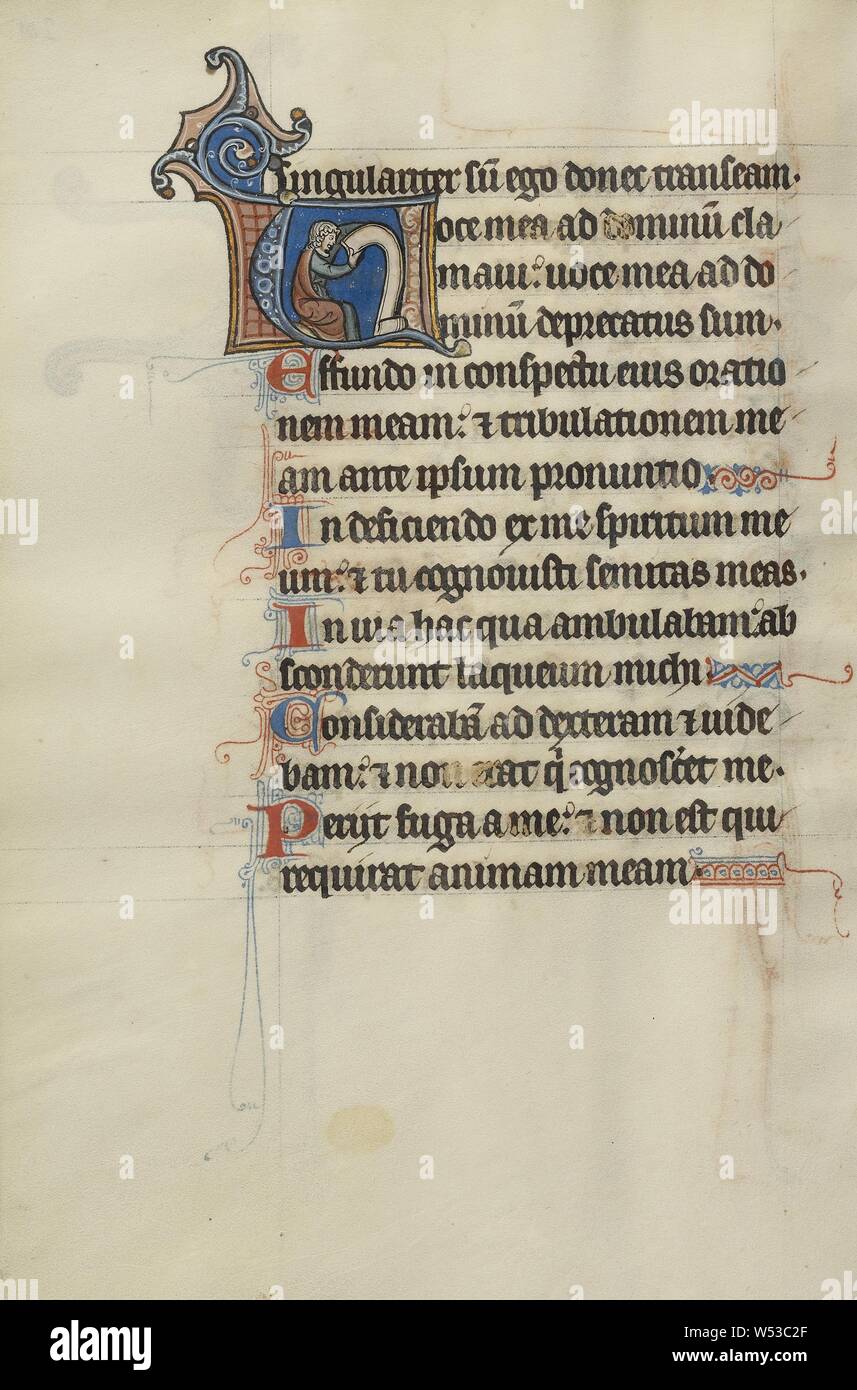 Singulariter sū ego donec transeam.
Voce mea ad dominū cla
maui: uoce mea ad do
minū deprecatus sum.
Effundo in conspectu eius oratio
nem meam: ⁊ tribulationem me
am ante ipsum pronuntio.
In deficiendo ex me spiritum me
um: ⁊ tu cognouisti semitas meas.
In uia hac qua ambulabam: ab
sconderunt laqueum michi.
Considerabā ad dexteram ⁊ uide
bam: ⁊ non erat q̄ cognosceret me.
Perijt fuga a me: ⁊ non est qui
requirat animam meam.
a alamy
alamy
Image ID: W53C2F
www.alamy.com